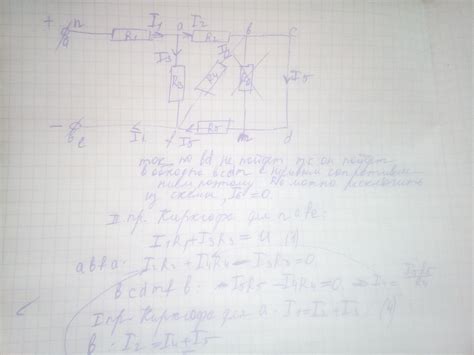 + n I₁ a I₂ b c
R₁ R₂
I₃ I₄ I₅
R₃ R₄ R₆
− e I₁ f I₅ R₅ m d
ток по bd не пойдет т.к. он пойдет
в обход по с нулевым сопротивле-
нием поэтому R₆ можно исключить
из схемы, I₆=0.
II пр. Кирхгофа для nafe:
I₁R₁+I₃R₃=U
abfa: I₂R₂+I₄R₄−I₃R₃=0
bcdmfb: I₅R₅−I₄R₄=0 I₄=I₅R₅/R₄
I пр. Кирхгофа для a: I₁=I₂+I₃
b: I₂=I₄+I₅